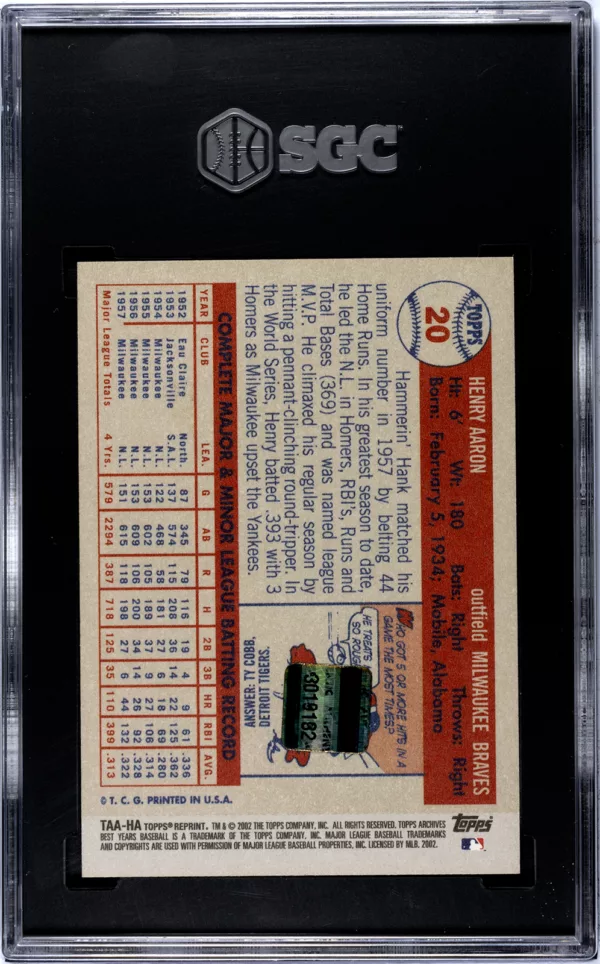 SGC
TOPPS
20
HENRY AARON outfield MILWAUKEE BRAVES
Ht: 6' Wt: 180 Bats: Right Throws: Right
Born: February 5, 1934; Mobile, Alabama
Hammerin' Hank matched his
uniform number in 1957 by belting 44
Home Runs. In his greatest season to date,
he led the N.L. in Homers, RBI's, Runs and
Total Bases (369) and was named league
M.V.P. He climaxed his regular season by
hitting a pennant-clinching round-tripper. In
the World Series, Henry batted .393 with 3
Homers as Milwaukee upset the Yankees.
WHO GOT 5 OR MORE HITS IN A
GAME THE MOST TIMES?
HE TREATS
SO ROUGH
ANSWER: TY COBB,
DETROIT TIGERS.
COMPLETE MAJOR & MINOR LEAGUE BATTING RECORD
YEAR CLUB LEA. G AB R H 2B 3B HR RBI AVG.
1952 Eau Claire North. 87 345 79 116 19 4 9 61 .336
1953 Jacksonville S.A.L. 137 574 115 208 36 14 22 125 .362
1954 Milwaukee N.L. 122 468 58 131 27 6 13 69 .280
1955 Milwaukee N.L. 153 602 105 189 37 9 27 106 .314
1956 Milwaukee N.L. 153 609 106 200 34 14 26 92 .328
1957 Milwaukee N.L. 151 615 118 198 27 6 44 132 .322
Major League Totals 4 Yrs. 579 2294 387 718 125 35 110 399 .313
© T. C. G. PRINTED IN U.S.A.
TAA-HA TOPPS® REPRINT. TM & © 2002 THE TOPPS COMPANY, INC. ALL RIGHTS RESERVED. TOPPS ARCHIVES
BEST YEARS BASEBALL IS A TRADEMARK OF THE TOPPS COMPANY, INC. MAJOR LEAGUE BASEBALL TRADEMARKS
AND COPYRIGHTS ARE USED WITH PERMISSION OF MAJOR LEAGUE BASEBALL PROPERTIES, INC. LICENSED BY MLB. 2002.
Topps